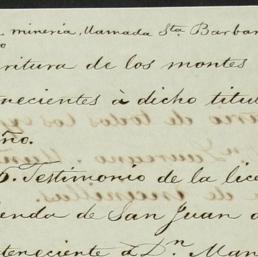 minería, llamada Sta. Barbar
o
ritura de los montes
necientes à dicho titul
ño.
Testimonio de la lice
enda de San Juan d
teneciente à Dn. Man